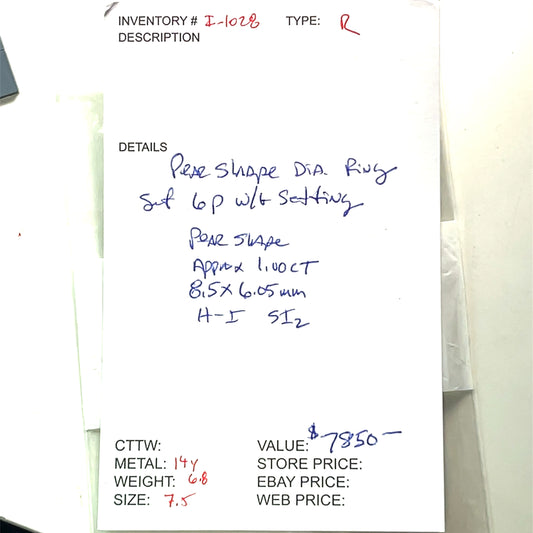 INVENTORY # I-1028 TYPE: R
DESCRIPTION
DETAILS
PEAR SHAPE DIA. RING
Set 6P W/G Setting
PEAR SHAPE
APPROX 1.00CT
8.5 X 6.05mm
H-I SI2
CTTW: VALUE: $7850-
METAL: 14Y STORE PRICE:
WEIGHT: 6.8 EBAY PRICE:
SIZE: 7.5 WEB PRICE: